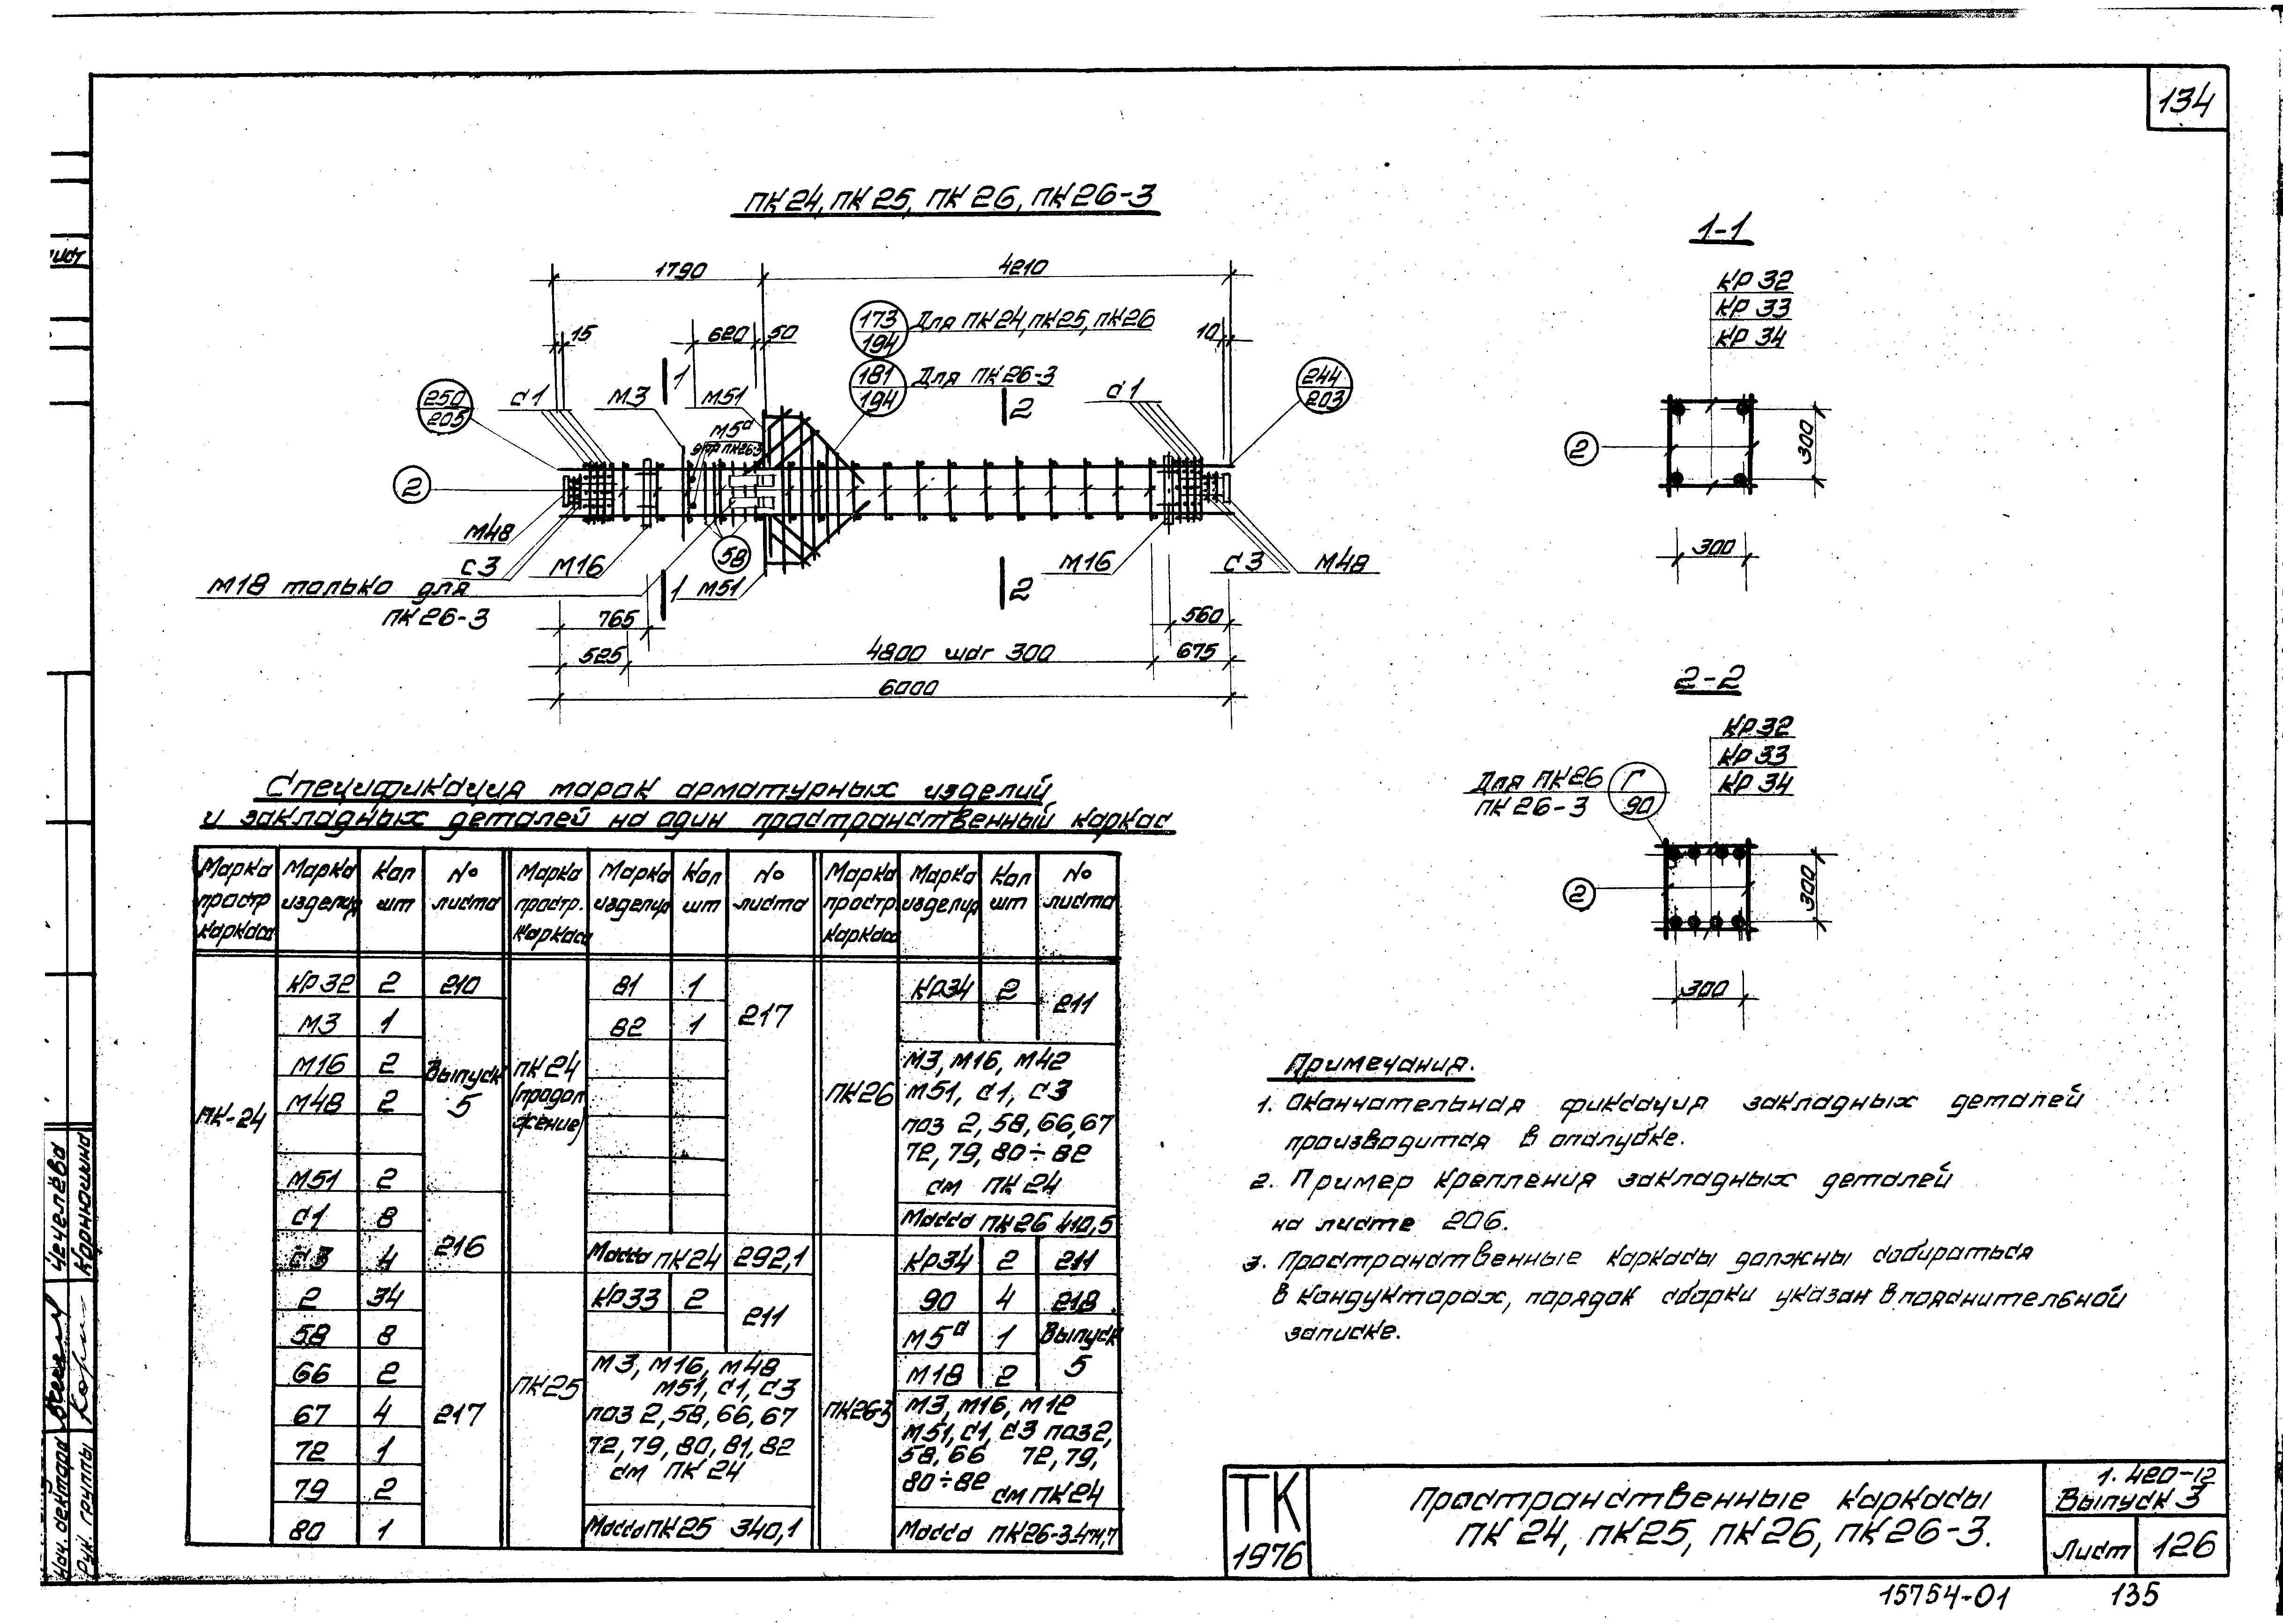 134
ПК24, ПК25, ПК26, ПК26-3
1790
4210
15
620
50
10
173
194
Для ПК24, ПК25, ПК26
181
194
Для ПК26-3
250
205
С1
М3
1
М51
М5а
для ПК26-3
2
С1
244
203
2
М48
С3
М16
58
М18 только для
ПК26-3
1
М51
2
М16
С3
М48
765
560
525
4800 шаг 300
675
6000
1-1
КР32
КР33
КР34
2
300
300
2-2
КР32
КР33
КР34
Для ПК26
ПК26-3
Г
90
2
300
300
Спецификация марок арматурных изделий
и закладных деталей на один пространственный каркас
Марка простр каркаса | Марка изделия | Кол шт | № листа | Марка простр. каркаса | Марка изделия | Кол шт | № листа | Марка простр. каркаса | Марка изделия | Кол шт | № листа
ПК-24
КР32 2 210
М3 1
М16 2
М48 2
Выпуск
5
М51 2
С1 8
С3 4
216
2 34
58 8
66 2
67 4
217
72 1
79 2
80 1
ПК24
(продол
жение)
81 1
82 1
217
Масса ПК24 292,1
ПК25
КР33 2
211
М3, М16, М48
М51, С1, С3
поз 2, 58, 66, 67
72, 79, 80, 81, 82
см ПК24
Масса ПК25 340,1
ПК26
КР34 2
211
М3, М16, М42
М51, С1, С3
поз 2, 58, 66, 67
72, 79, 80÷82
см ПК24
Масса ПК26 410,5
ПК26-3
КР34 2 211
90 4 218
М5а 1 Выпуск
М18 2 5
М3, М16, М12
М51, С1, С3 поз 2,
58, 66 72, 79,
80÷82 см ПК24
Масса ПК26-3
Примечания.
1. Окончательная фиксация закладных деталей
производится в опалубке.
2. Пример крепления закладных деталей
на листе 206.
3. Пространственные каркасы должны собираться
в кондукторах, порядок сборки указан в пояснительной
записке.
ТК
1976
Пространственные каркасы
ПК24, ПК25, ПК26, ПК26-3.
1.420-12
Выпуск 3
Лист
126
15754-01
135
лист
Чечелёва
Корнюшина
Нач. сектора
Рук. группы